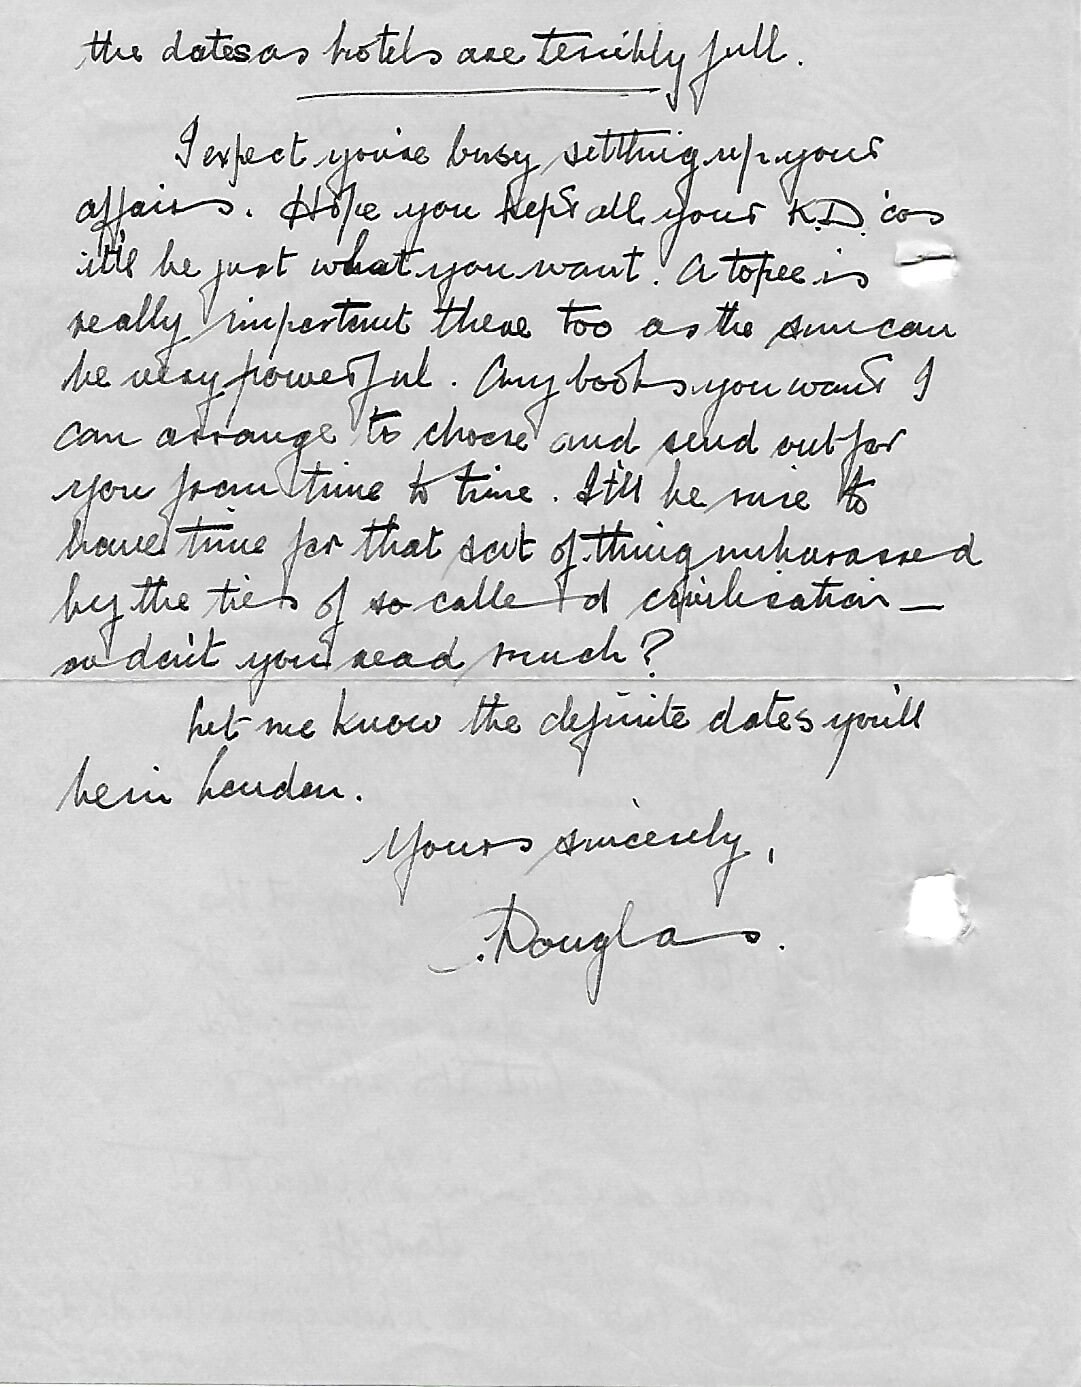 the dates as hotels are terribly full.
I expect you're busy settling up your
affairs. Hope you kept all your K.D. 'cos
it'll be just what you want. A topee is
really important there too as the sun can
be very powerful. Any books you want I
can arrange to choose and send out for
you from time to time. It'll be nice to
have time for that sort of thing unharassed
by the ties of so called civilisation —
or don't you read much?
Let me know the definite dates you'll
be in London.
Yours sincerely,
Douglas.